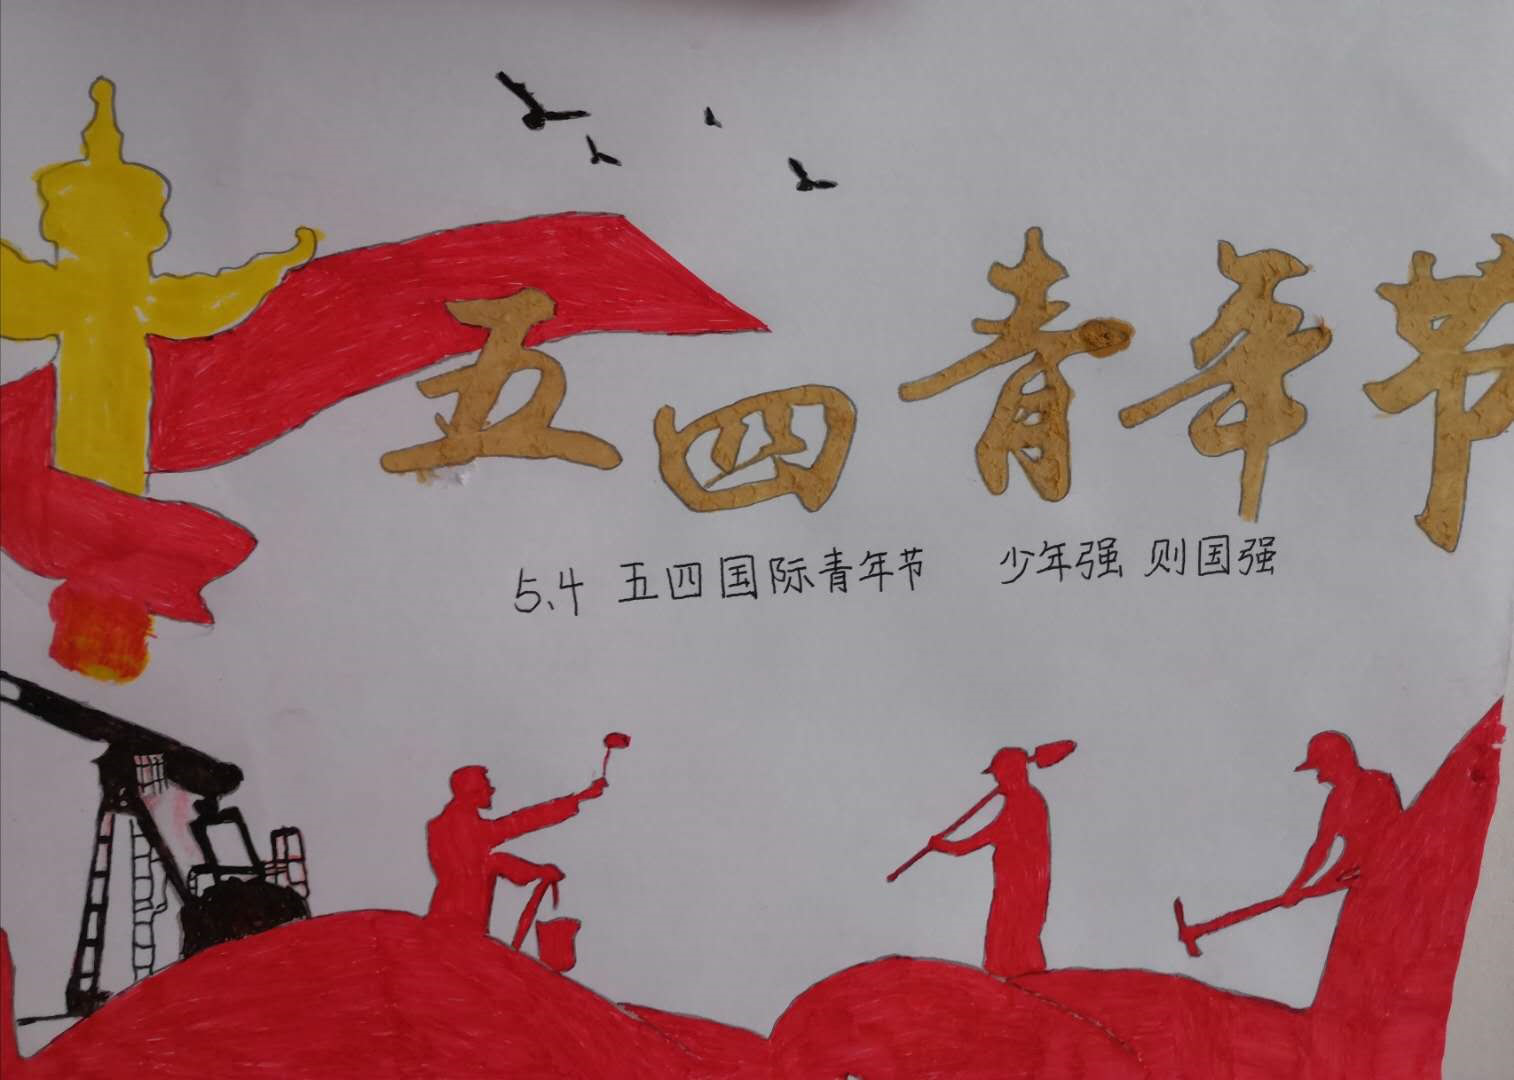 五四青年节
5.4 五四国际青年节 少年强 则国强